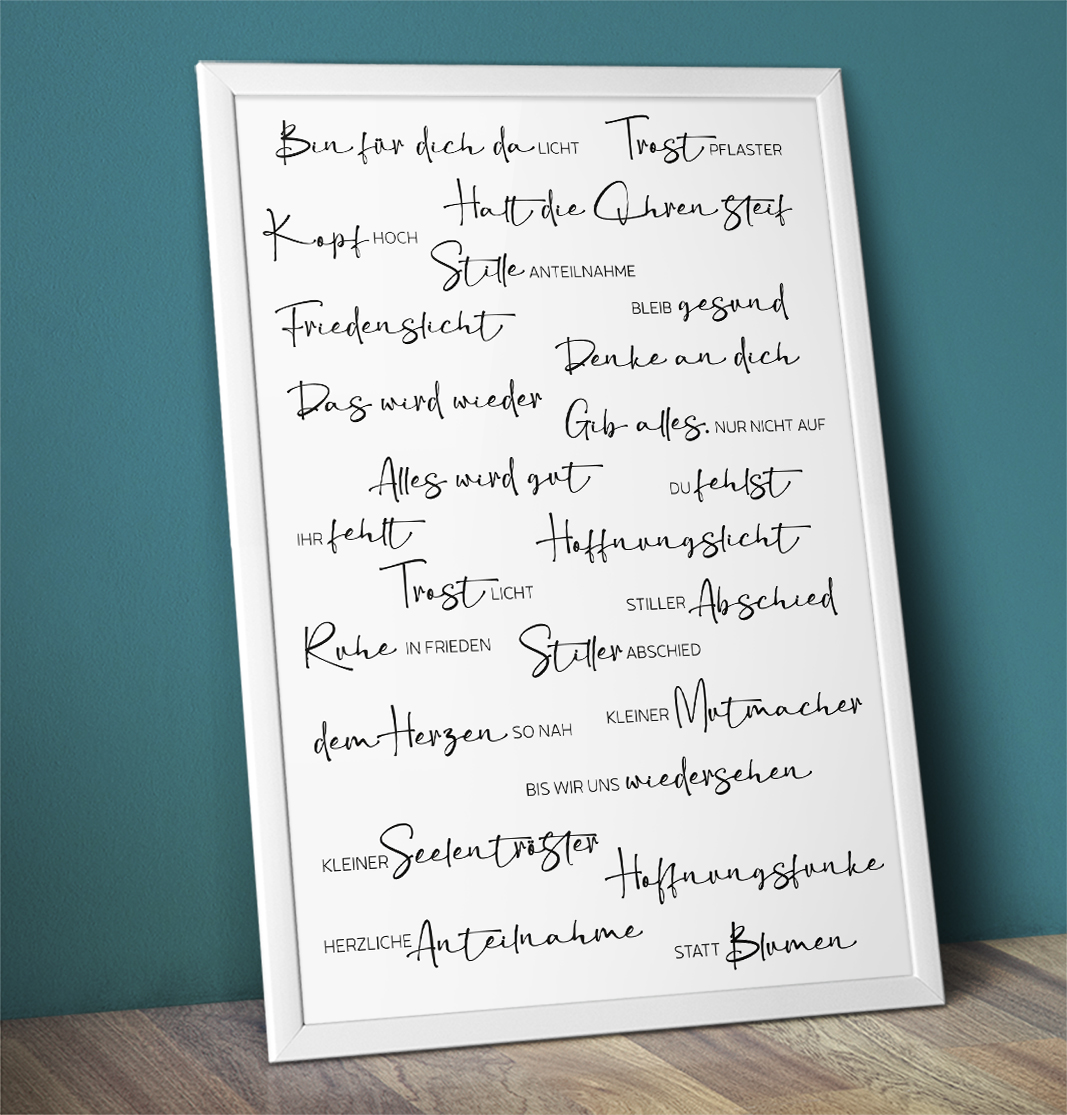 Bin für dich da LICHT
Trost PFLASTER
Halt die Ohren steif
Kopf HOCH
Stille ANTEILNAHME
BLEIB gesund
Friedenslicht
Denke an dich
Das wird wieder
Gib alles. NUR NICHT AUF
Alles wird gut
DU fehlst
IHR fehlt
Hoffnungslicht
Trost LICHT
STILLER Abschied
Ruhe IN FRIEDEN
Stiller ABSCHIED
dem Herzen SO NAH
KLEINER Mutmacher
BIS WIR UNS wiedersehen
KLEINER Seelentröster
Hoffnungsfunke
HERZLICHE Anteilnahme
STATT Blumen